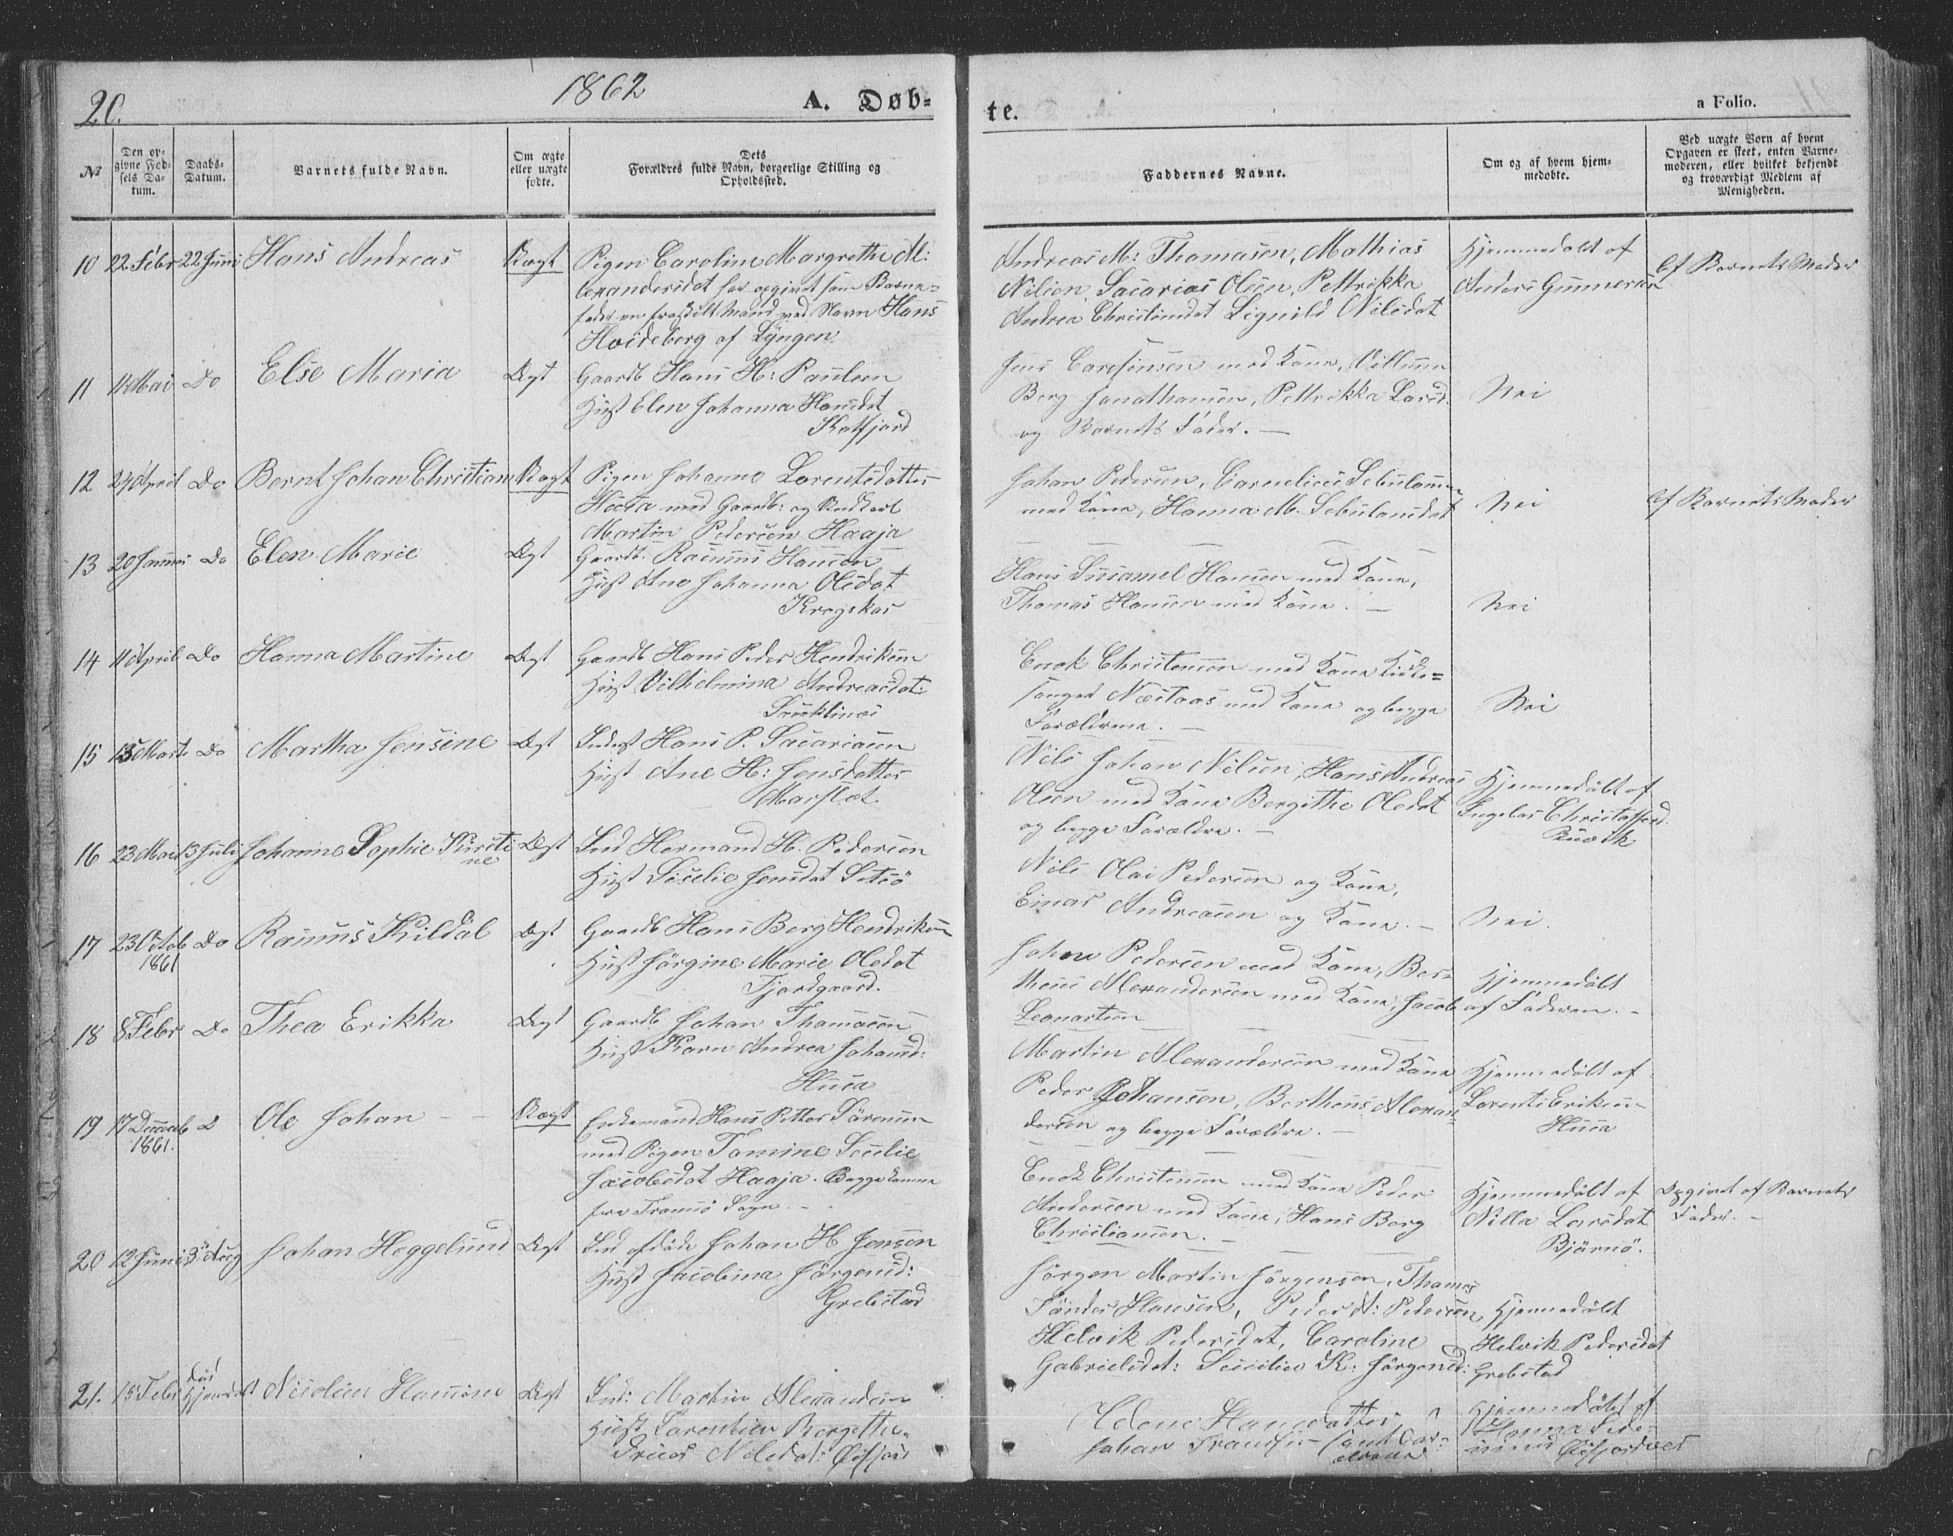 20.
1862
A. Døb-
te.
a Folio.
№
Den op-
givne Fød-
sels Da-
tum.
Daabs-
Datum.
Barnets fulde Navn.
Om ægte
eller uægte
fødte.
Dets
Forældres fulde Navn, borgerlige Stilling og
Opholdssted.
Faddernes Navne.
Om og af hvem hjem-
medøbte.
Ved uægte Børn af hvem
Opgaven er skeet, enten Barne-
moderen, eller hvilket bekjendt
og troværdigt Medlem af
Menigheden.
10 22 Febr 22 Juni Hans Andreas Uægt
Pigen Carolin Margrethe Al:
lexandersdat har opgivet som Barne-
fader en fraskilt Mand ved Navn Hans
Hvideberg af Lyngen
Andreas M: Thomasen, Mathias
Nilsen, Sacarias Olsen, Pettrikka
Andrea Christensdat Signild Nilsdat
Hjemmedøbt af
Anders Gunnersen
Af Barnets Moder
11 11 Mai Do Else Maria Ægt
Gaardb Hans H: Paulsen
Hust Elen Johanna Hansdat
Katfjord
Jens med Kone, Villum
Berg Jonathansen, Pettrikka Larsd.
og Barnets Fader. —
Nei
12 24 April Do Bernt Johan Christian Uægt
Pigen Johanne Lorentsdatter
med Gaardb: og Enkkarl
Martin Pedersen Haaja
Johan Pedersen, Cornelius Sebulonsen
med Kone, Hanna M. Sebulonsdat
Nei
Af Barnets Moder
13 20 Januar Do Elen Marie Ægt
Gaardb: Rasmus Hansen
Hust Ane Johanna Olsdat
Kragskar
Hans Susamel Hansen med Kone,
Thomas Hansen med Kone. —
Nei
14 11 April Do Hanna Martine Ægt
Gaardb Hans Peder Hendriksen
Hust Vilhelmina Andreasdat:
Enok Christensen med Kone Kirke-
sanger Næstaas med Kone og begge
Forældrene. —
Nei
15 15 Marts Do Martha Jensine Ægt
Inderst Hans P. Sacariasen
Hust Ane H: Jensdatter
Marslet
Nils Johan Nilsen, Hans Andreas
Olsen med Kone Bergithe Olsdat
og begge Forældre. —
Hjemmedøbt af
Engelas Christoffersd.
16 23 Mars 13 Juli Johanne Sophie Kirsti-
ne Ægt
Ind Hermand H. Pedersen
Hust Sicelie Jensdat Sitsø
Nils Olai Pedersen og Kone,
Einar Andreasen og Kone. —
Nei.
17 23 Octob
1861 Do Rasmus Kildal Ægt
Gaardb Hans Berg Hendriksen
Hust Jørgine Marie Olsdat
Fjordgaard.
Johan Pedersen med Kone, Ber-
theus Alexandersen med Kone, Jacob
Leonartsen
Hjemmedøbt
af Faderen. —
18 8 Febr Do Thea Erikka Ægt
Gaardb Johan Thomasen
Hust Karn Andrea Johansd:
Husa
Martin Alexandersen med Kone
Peder Johansen, Bertheus Alexan-
dersen og begge Forældre. —
Hjemmedøbt af
Lorents Eriksen
Husa
19 17 Decemb
1861. Ole Johan Uægt
Enkemand Hans Petter Sørensen
med Pigen Tomine Sicilie
Jacobsdat Haaja. Begge komne
fra Tromsø Sogn. —
Enok Christensen med Kone Peder
Andersen med Kone, Hans Berg
Christiansen. —
Hjemmedøbt af
Nilla Larsdat
Bjørnø.
Opgivet af Barnets
Fader. —
20 12 Juni 3 Aug Johan Heggelund Ægt
Ind afdøde Johan H Jensen
Hust Jacobina Jørgensd:
Grebstad
Jørgen Martin Jørgensen, Thomas
Tønder Hansen, Peder A: Pedersen
Helvik Pedersdat, Caroline
Gabrielsdat: Siccilie K: Jørgensd:
Hjemmedøbt
Helvik Pedersdat
Grebstad
21. 15 Febr Hjemdøbt Nicolai Ægt
Ind: Martin Alexandersen
Hust Lorentsen Bergethe
Nilsdat: Øifjord
Helene Hansdatter
Johan Fransen samt For-
ældrene
Hjemmedøbt af
Hanna